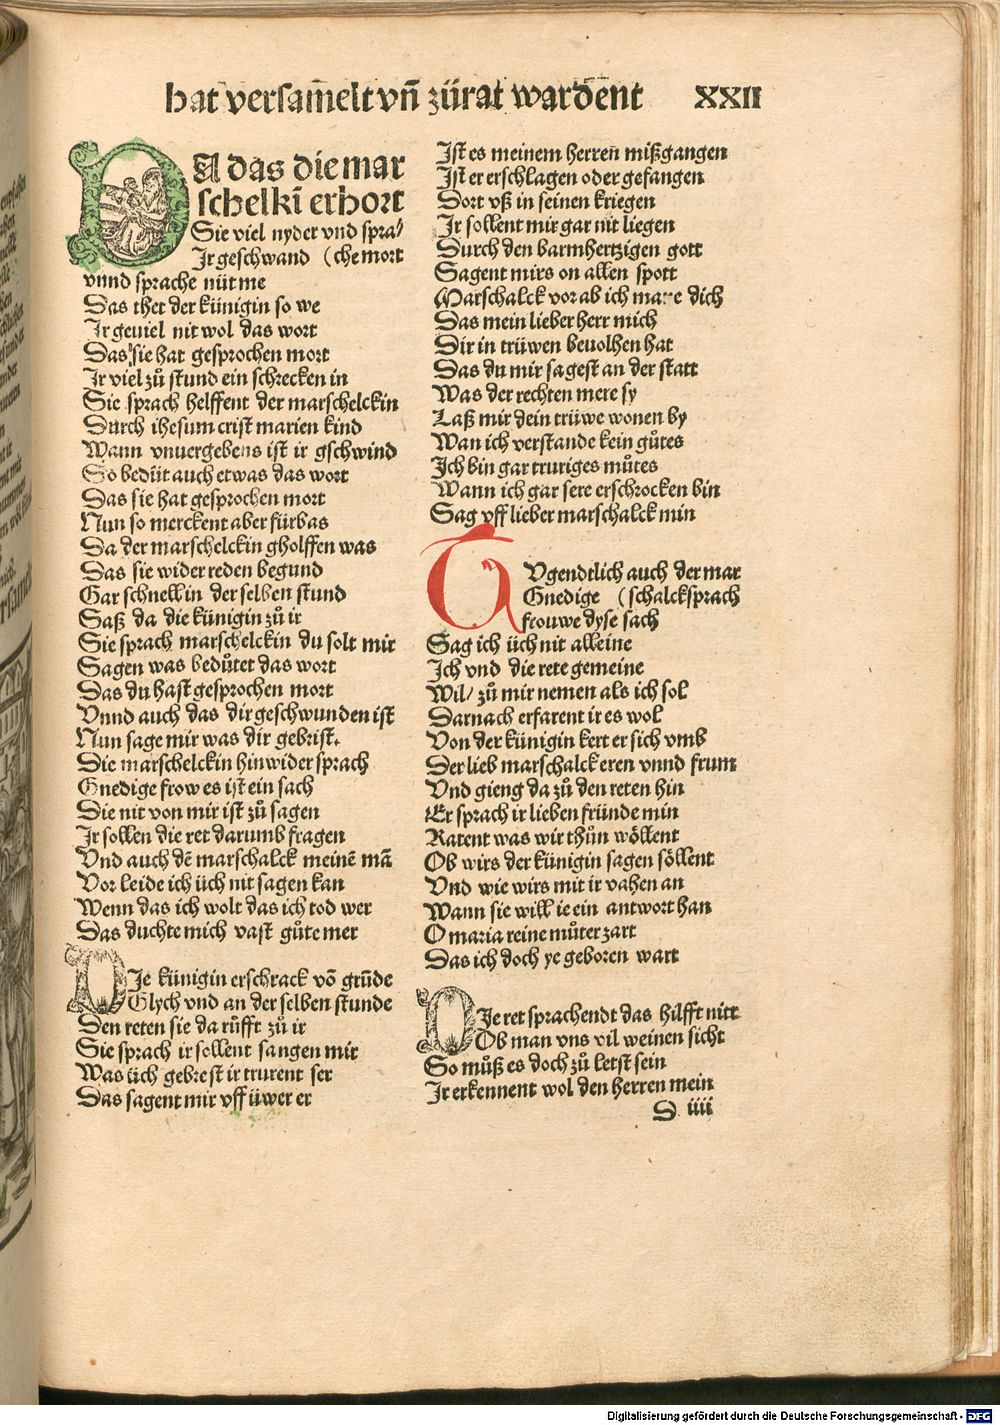 hat versam̃elt vñ zürat wardent XXII
DA das die mar
schelkī erhort
Sie viel nyder vnd spra⸗
Ir geschwand (che mort
vnnd sprache nüt me
Das thet der künigin so we
Ir geuiel nit wol das wort
Das sie hat gesprochen mort
Ir viel zů stund ein schrecken in
Sie sprach helffent der marschelckin
Durch ihesum crist marien kind
Wann vnuergebens ist ir gschwind
So bedüt auch etwas das wort
Das sie hat gesprochen mort
Nun so merckent aber fürbas
Da der marschelckin gholffen was
Das sie wider reden begund
Gar schnell in der selben stund
Saß da die künigin zů ir
Sie sprach marschelckin du solt mir
Sagen was bedůtet das wort
Das du hast gesprochen mort
Vnnd auch das dir geschwunden ist
Nun sage mir was dir gebrist.
Die marschelckin hinwider sprach
Gnedige frow es ist ein sach
Die nit von mir ist zů sagen
Ir sollen die ret darumb fragen
Vnd auch dē marschalck meinē mā
Vor leide ich üch nit sagen kan
Wenn das ich wolt das ich tod wer
Das duchte mich vast gůte mer
DIe künigin erschrack vō grūde
Glych vnd an der selben stunde
Den reten sie da růfft zů ir
Sie sprach ir sollent sangen mir
Was üch gebrest ir trurent ser
Das sagent mir vff üwer er
Ist es meinem herren mißgangen
Ist er erschlagen oder gefangen
Dort vß in seinen kriegen
Ir sollent mir gar nit liegen
Durch den barmhertzigen gott
Sagent mirs on allen spott
Marschalck vor ab ich mane dich
Das mein lieber herr mich
Dir in trüwen beuolhen hat
Das du mir sagest an der statt
Was der rechten mere sy
Laß mir dein trüwe wonen by
Wan ich verstande kein gůtes
Ich bin gar truriges můtes
Wann ich gar sere erschrocken bin
Sag vff lieber marschalck min
TVgendtlich auch der mar
Gnedige (schalck sprach
frouwe dyse sach
Sag ich üch nit alleine
Ich vnd die rete gemeine
Wil/ zů mir nemen als ich sol
Darnach erfarent ir es wol
Von der künigin kert er sich vmb
Der lieb marschalck eren vnnd frum
Vnd gieng da zů den reten hin
Er sprach ir lieben fründe min
Ratent was wir thůn wöllent
Ob wirs der künigin sagen söllent
Vnd wie wirs mit ir vahen an
Wann sie will ie ein antwort han
O maria reine můter zart
Das ich doch ye geboren wart
DIe ret sprachendt das hilfft nitt
Ob man vns vil weinen sicht
So můß es doch zů letst sein
Ir erkennent wol den herren mein
D iiii
Digitalisierung gefördert durch die Deutsche Forschungsgemeinschaft - DFG